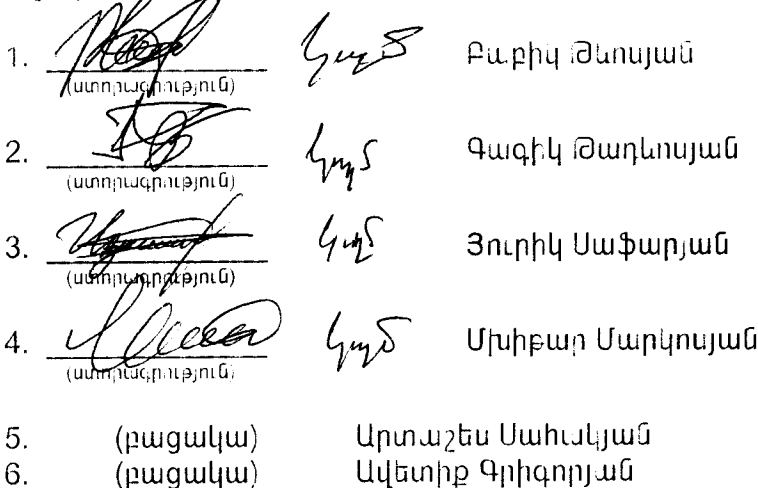 1. կողմ Բաբիկ Թևոսյան
(ստորագրություն)
2. կողմ Գագիկ Թադևոսյան
(ստորագրություն)
3. կողմ Յուրիկ Սաֆարյան
(ստորագրություն)
4. կողմ Մխիթար Մարկոսյան
(ստորագրություն)
5. (բացակա) Արտաշես Սահակյան
6. (բացակա) Ավետիք Գրիգորյան